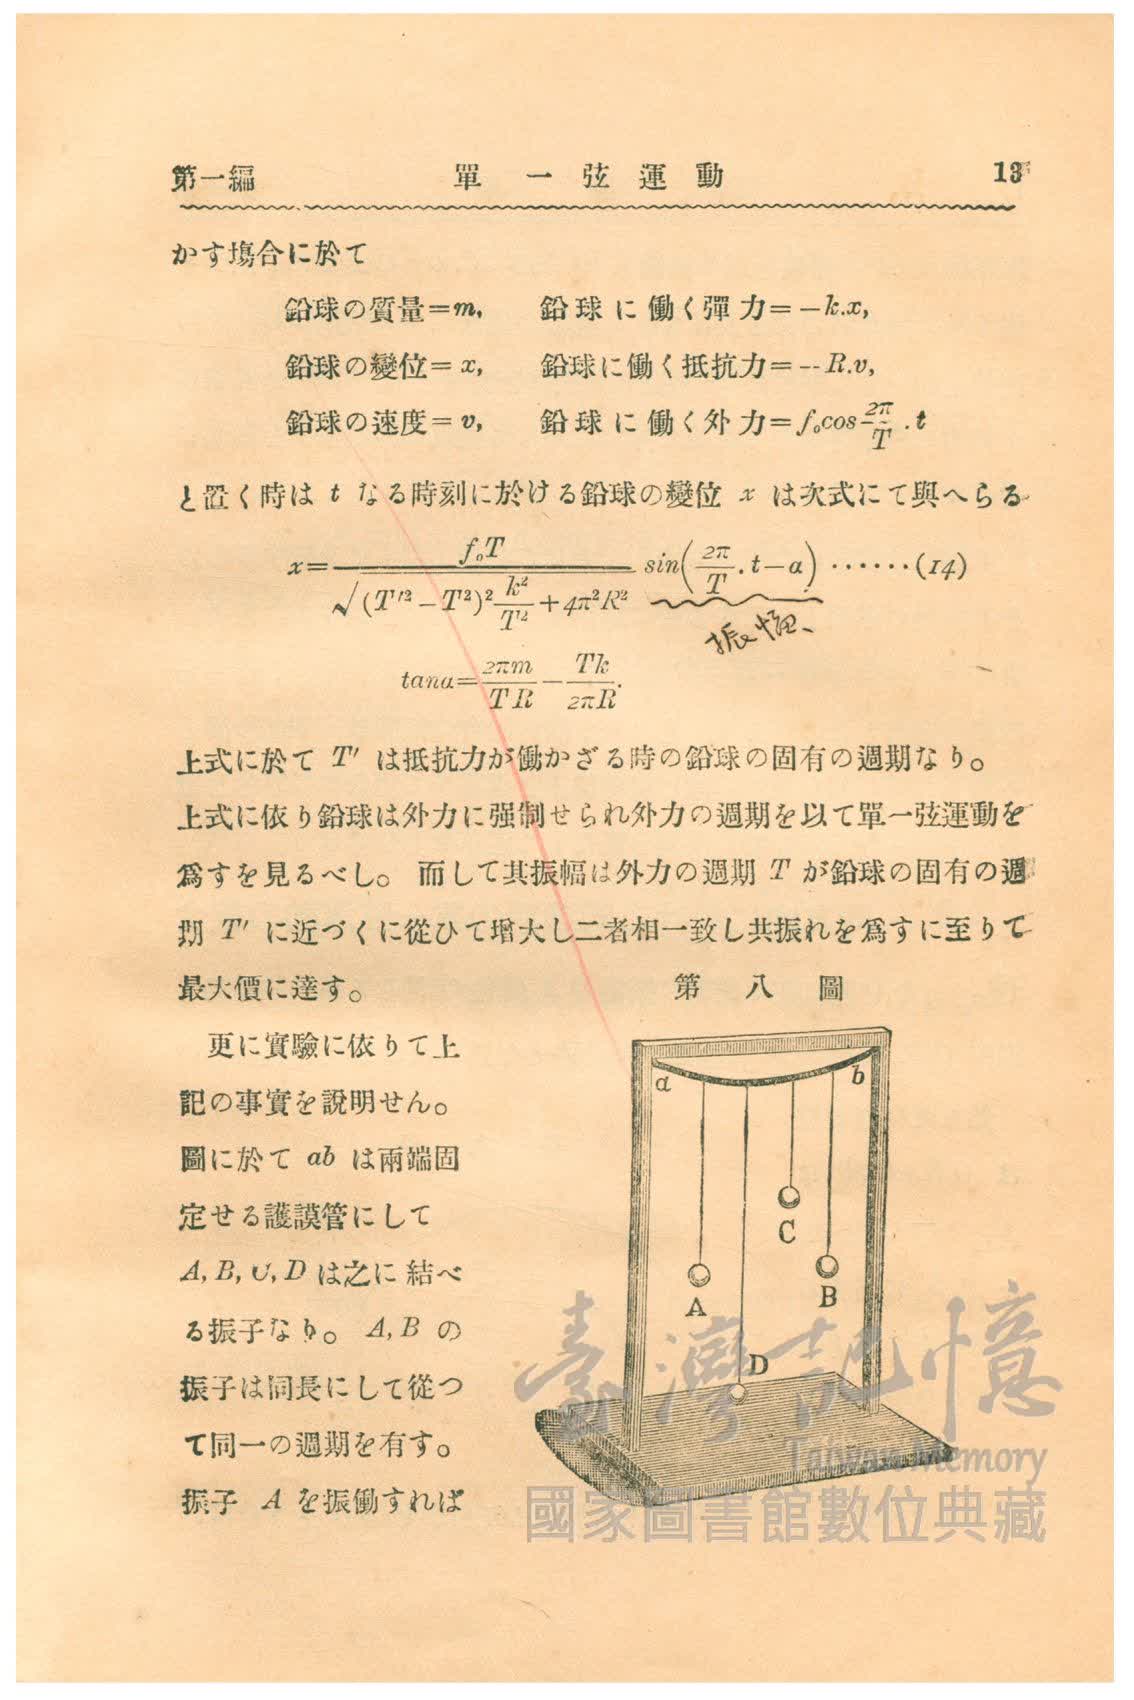 第一編 單一弦運動 13
かす塲合に於て
鉛球の質量=m, 鉛球に働く彈力=-k.x,
鉛球の變位=x, 鉛球に働く抵抗力=--R.v,
鉛球の速度=v, 鉛球に働く外力=f₀cos 2π/T .t
と置く時は t なる時刻に於ける鉛球の變位 x は次式にて與へらる
x= f₀T / √(T'²-T²)² k²/T² +4π²R² sin(2π/T .t-α) ······(14)
振幅、
tanα= 2πm/TR - Tk/2πR.
上式に於て T' は抵抗力が働かざる時の鉛球の固有の週期なり。
上式に依り鉛球は外力に强制せられ外力の週期を以て單一弦運動を
爲すを見るべし。 而して其振幅は外力の週期 T が鉛球の固有の週
期 T' に近づくに從ひて增大し二者相一致し共振れを爲すに至りて
最大價に達す。
第八圖
更に實驗に依りて上
記の事實を說明せん。
圖に於て ab は兩端固
定せる護謨管にして
A, B, C, D は之に結べ
る振子なり。 A, B の
振子は同長にして從つ
て同一の週期を有す。
振子 A を振働すれば
a b
C
A B
D
臺灣記憶
Taiwan Memory
國家圖書館數位典藏